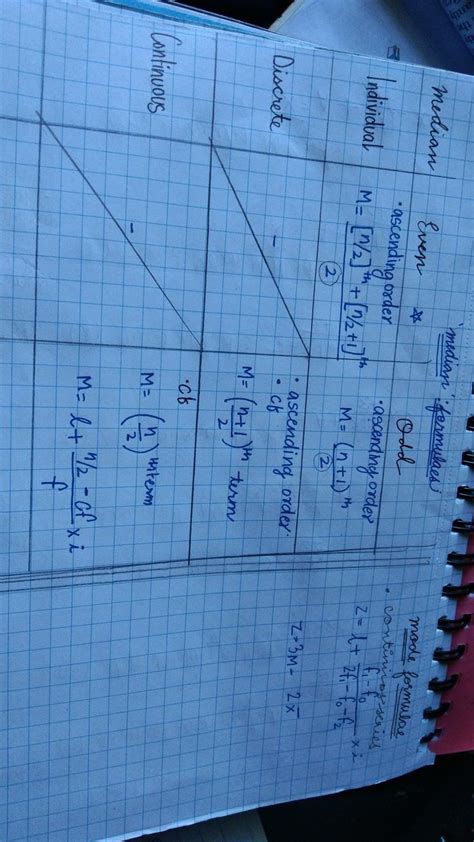 "median" formulaes:
median Even * Odd
Individual
• ascending order
M = [n/2]th + [n/2+1]th
2
• ascending order
M = (n+1)th
2
Discrete
–
• ascending order
• cf
M = (n+1/2)th term
Continuous
–
• cf
M = (n/2)th term
M = l + n/2 - cf/f × i
mode formulae
• continuous series
Z = l + f₁-f₀/2f₁-f₀-f₂ × i
Z = 3M - 2x̄